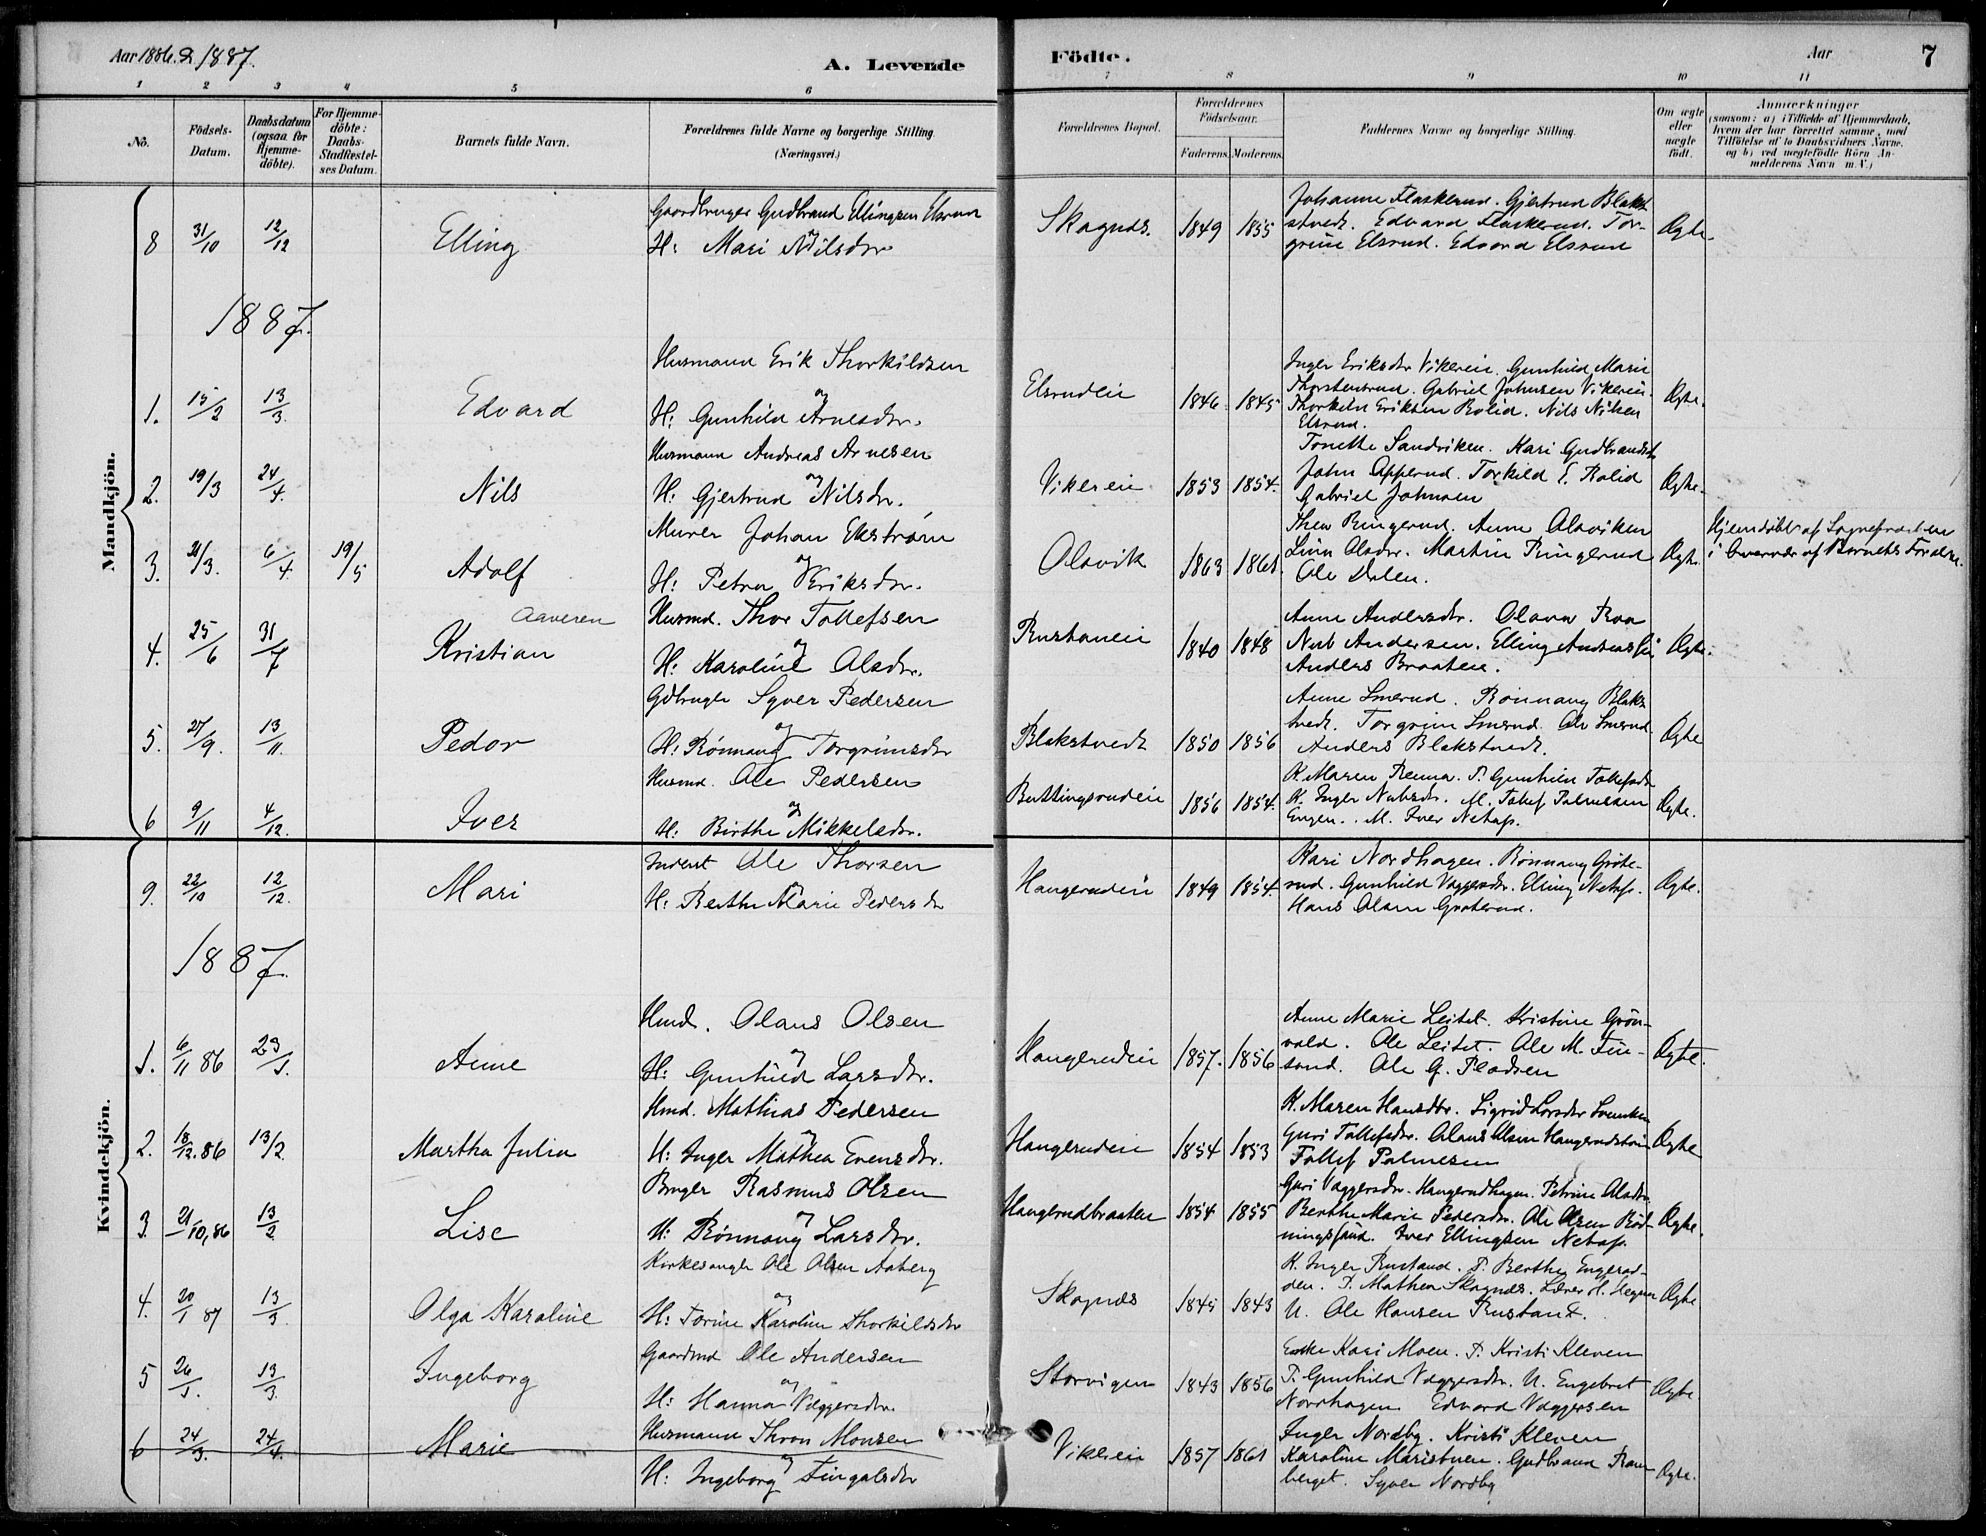 Aar 1886 & 1887.
A. Levende
Födte.
Aar
7
1 2 3 4 5 6 7 8 9 10 11
No.
Födsels-Datum.
Daabsdatum (ogsaa for Hjemme-döbte).
For Hjemme-döbte: Daabs-Stadfæstel-ses Datum.
Barnets fulde Navn.
Forældrenes fulde Navne og borgerlige Stilling. (Næringsvei.)
Forældrenes Bopæl.
Forældrenes Födselsaar.
Faderens. Moderens.
Faddernes Navne og borgerlige Stilling.
Om ægte eller uægte födt.
Anmærkninger
(saasom: a) i Tilfælde af Hjemmedaab, hvem der har forrettet samme, med Tilföielse af to Daabsvidners Navne, og b) ved uægtefödte Börn An-melderens Navn m.V.)
Mandkjön.
8 31/10 12/12 Elling
Gaardbruger Gudbrand Ellingsen Elsrud
og
H: Mari Nilsdr
Skagnæs. 1849 1855
Johanne Flaskerud. Gjertrud Blakt-
stvedt. Edvard Flaskerud. Tor-
grim Elsrud. Edvard Elsrud
Ægte.
1887.
1. 15/2 13/3 Edvard
Husmand Erik Thorkildsen
og
H: Gunhild Arnesdr.
Elsrudeie 1846 1845
Inger Eriksdr Vikereie. Gunhild Marie
Thorstensrud. Gabriel Johnsen Vikereie.
Thorkild Eriksen Rolid. Nils Nilsen
Elsrud.
Ægte.
2. 19/3 24/4. Nils
Husmann Andreas Arnesen
og
H: Gjertrud Nilsdr.
Vikereie 1853 1854.
Tonette Sandviken. Kari Gudbrandsd
John Opperud. Torkild E. Rolid
Gabriel Johnsen
Ægte.
3. 21/3. 6/4. 19/5 Adolf
Murer Johan Ekstrøm
og
H: Petra Eriksdr.
Olavik 1863 1861.
Thea Ringerud. Anne Olaviken
Lina Olsdr. Martin Ringerud
Ole Dalen.
Ægte
Hjemdöbt af Sognepræsten
i Overvær af Barnets Forældre.
4. 25/6 31/7 Kristian Aaveren
Husmd. Thor Tollefsen
og
H: Karoline Olsdr.
Rustaneie 1840 1848
Anne Andersdr. Olava Roa
Nub Andersen. Elling
Anders Braaten.
Ægte.
5. 27/9. 13/11. Peder
Gdbruger Syver Pedersen
og
H: Rönnaug Torgrimsdr
Blakstvedt 1850 1856
Anne Smerud. Rönnaug Blaks
tvedt. Torgrim Smerud. Ole Smerud
Anders Blakstvedt.
Ægte
6 9/11 4/12. Iver
Husmd. Ole Pedersen
og
H: Birthe Mikkelsdr.
Buttingsrudeie 1856 1854.
K. Maren Renna. P. Gunhild Tollefsdr
K. Inger Nubsdr. M. Tollef Palmesen
Engen. M. Iver Netap.
Ægte.
Kvindekjön.
9. 22/10 12/12. Mari
Inderst Ole Thorsen
og
H: Berthe Marie Pedersdr
Haugerudeie 1849 1854.
Kari Nordhagen. Rönnaug Gröte-
rud. Gunhild Vaggersdr. Elling Netap.
Hans Olsen Gröterud.
Ægte.
1887.
1. 6/11 86 23/1. Anne
Hmd. Olaus Olsen
og
H: Gunhild Larsdr.
Haugerudeie 1857. 1856
Anne Marie Leitet. Kristine Grön-
vold. Ole Leitet. Ole M. Fin-
sand. Ole G. Pladsen
Ægte.
2. 18/12. 86 13/2. Martha Julia
Hmd. Mathias Pedersen
og
H: Inger Mathea Evensdr.
Haugerudeie 1854 1853
K. Maren Hansdtr. Sigrid Larsdr
Guri Tollefsdr. Olaus Olsen Haugerudseie
Tollef Palmesen
Ægte
3. 21/10, 86 13/2 Lise
Bruger Rasmus Olsen
og
H: Rönnaug Larsdr.
Haugerudbraaten 1854 1855
Guri Vaggersdr. Haugerudhagen. Petrine Olsdr.
Berthe Marie Pedersdr. Ole Olsen Röd-
ningssand. Iver Ellingsen Netap.
Ægte.
4. 20/1 87 13/3 Olga Karoline
Kirkesanger Ole Olsen Aaberg
og
H: Torine Karoline Thorkildsdr
Skagnæs 1845 1843
K. Inger Rustand. P. Berthe Engerod-
den. P. Mathea Skagnæs. Lærer H. Hegna
U. Ole Hansen Rustand.
Ægte
5 26/1. 13/3. Ingeborg
Gaardmd Ole Andersen
og
H: Hanna Vaggersdr.
Storvigen 1843 1856
Enke Kari Moen. P. Kristi Kleven
P. Gunhild Vaggersdr. U. Engebret
Nordhagen Edvard Vaggersen
Ægte
6 24/3. 24/4. Marie
Husmand Thron Monsen
og
H: Ingeborg Fingalsdr
Vikereie 1857 1861
Inger Nordby. Kristi Kleven
Karoline Mariestuen. Gudbrand Fram
berget. Syver Nordby
Ægte.